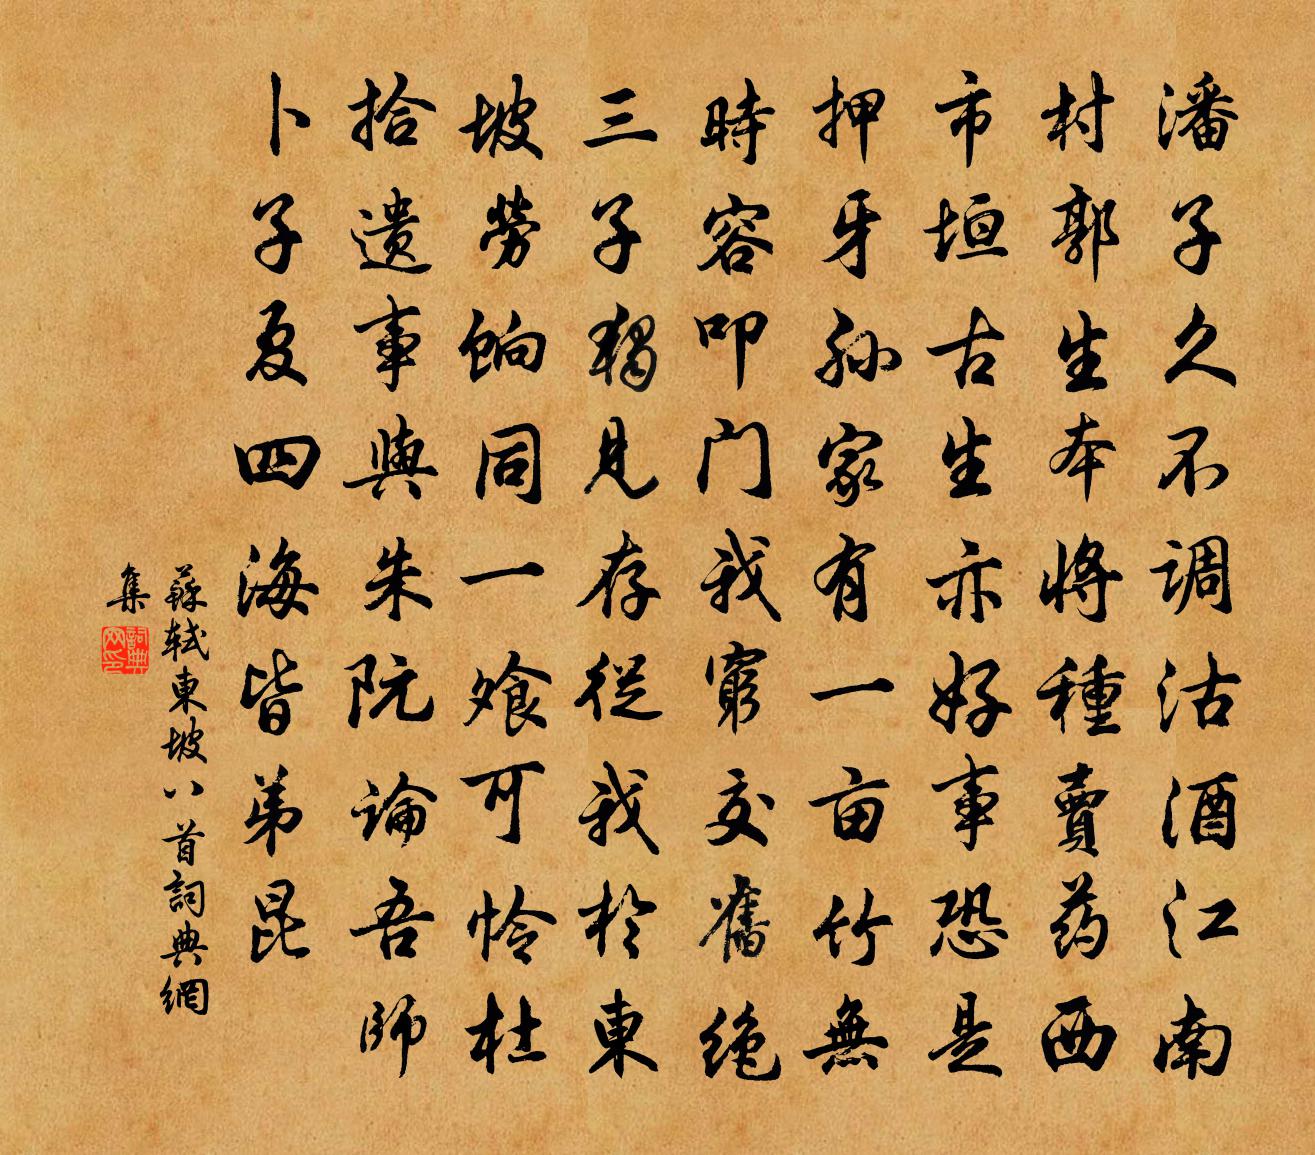 潘子久不調沽酒江南
村郭生本將種賣药西
市垣古生亦好事恐是
押牙孙家有一亩竹無
時容叩门我窮交舊绝
三子獨見存從我於東
坡勞餉同一飡可怜杜
拾遗事與朱阮論吾師
卜子夏四海皆弟昆
蘇轼東坡八首詞典網
集
詞典网印